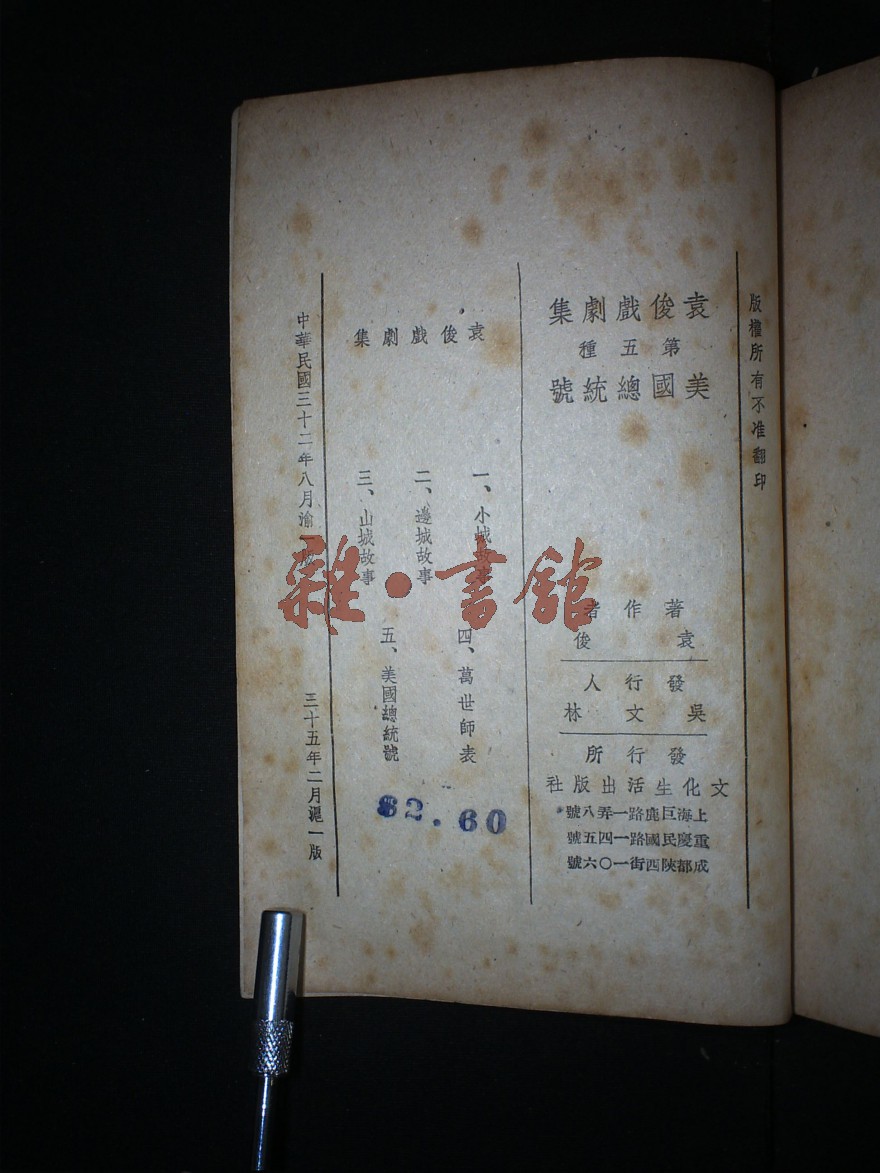 版權所有不准翻印
袁俊戲劇集
第五種
美國總統號
著作者
袁俊
發行人
吳文林
發行所
文化生活出版社
上海巨鹿路一弄八號
重慶民國路一四五號
成都陝西街一〇六號
袁俊戲劇集
一、小城故事
二、邊城故事
三、山城故事
四、萬世師表
五、美國總統號
82.60
中華民國三十二年八月渝一版
三十五年二月滬一版
雜·書館